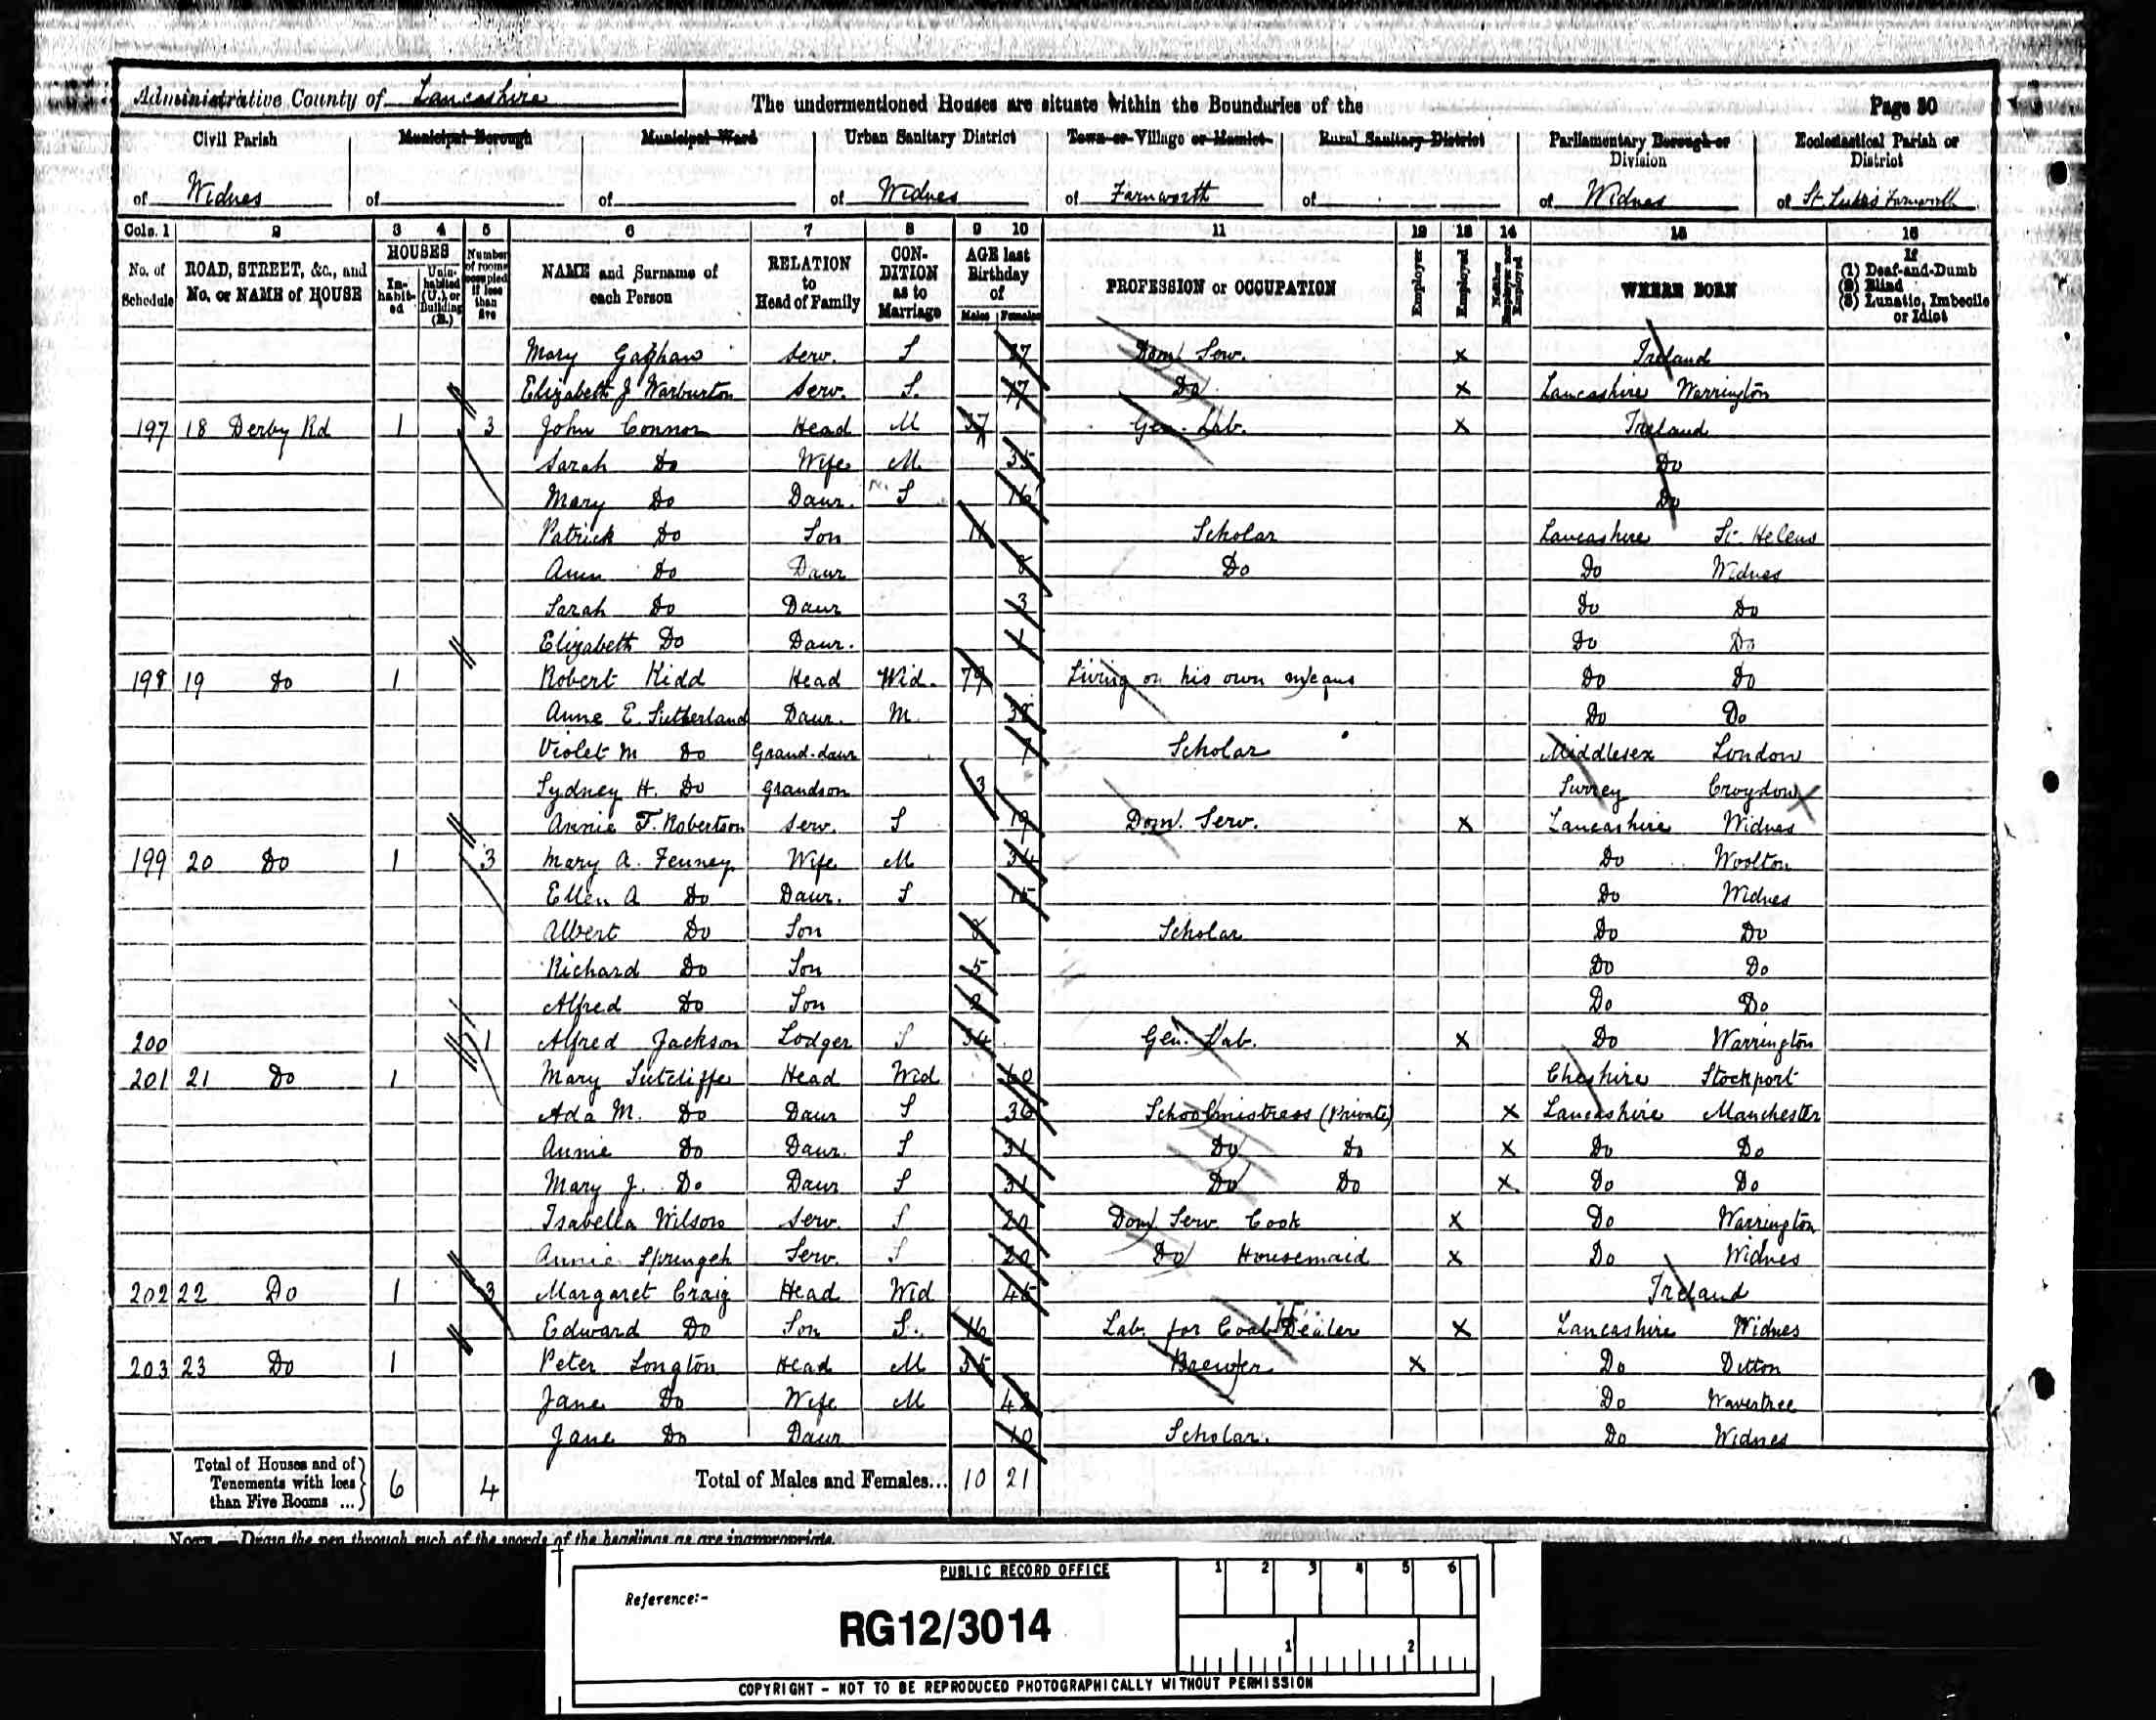 Administrative County of Lancashire
The undermentioned Houses are situate within the Boundaries of the
Page 30
Civil Parish Municipal Borough Municipal Ward Urban Sanitary District Town or Village or Hamlet Rural Sanitary District Parliamentary Borough or Division Ecclesiastical Parish or District
of Widnes of of of Widnes of Farnworth of of Widnes of St. Luke's Farnworth
Cols. 1 2 3 4 5 6 7 8 9 10 11 12 13 14 15 16
No. of Schedule
ROAD, STREET, &c., and No. or NAME of HOUSE
HOUSES
In-habit-ed
Unin-habited (U.), or Building (B.)
Number of rooms occupied if less than five
NAME and Surname of each Person
RELATION to Head of Family
CON-DITION as to Marriage
AGE last Birthday of
Males Females
PROFESSION or OCCUPATION
Employer
Employed
Neither Employer nor Employed
WHERE BORN
If
(1) Deaf-and-Dumb
(2) Blind
(3) Lunatic, Imbecile or Idiot
Mary Serv. S Dom. Serv. x Ireland
Elizabeth J Warburton Serv. S. 17 Do x Lancashire Warrington
197 18 Derby Rd 1 3 John Connor Head M 37 Gen. Lab. x Ireland
Sarah Do Wife M. 35 Do
Mary Do Daur. S 16 Do
Patrick Do Son 11 Scholar Lancashire St. Helens
Ann Do Daur 8 Do Do Widnes
Sarah Do Daur 3 Do Do
Elizabeth Do Daur. 1 Do Do
198 19 Do 1 Robert Kidd Head Wid. 79 Living on his own means Do Do
Anne E. Sutherland Daur. M. 38 Do Do
Violet M Do Grand-daur 7 Scholar Middlesex London
Sydney H. Do Grandson 3 Surrey Croydon
Annie F. Robertson Serv. S 19 Dom. Serv. x Lancashire Widnes
199 20 Do 1 3 Mary A. Fenney Wife M 34 Do Woolton
Ellen A Do Daur. S 15 Do Widnes
Albert Do Son 8 Scholar Do Do
Richard Do Son 5 Do Do
Alfred Do Son 2 Do Do
200 1 Alfred Jackson Lodger S 34 Gen. Lab. x Do Warrington
201 21 Do 1 Mary Sutcliffe Head Wid 60 Cheshire Stockport
Ada M. Do Daur S 36 Schoolmistress (Private) x Lancashire Manchester
Annie Do Daur. S 31 Do Do x Do Do
Mary J. Do Daur S 31 Do Do x Do Do
Isabella Wilson Serv. S 20 Dom Serv Cook x Do Warrington
Annie Serv. S 20 Do Housemaid x Do Widnes
202 22 Do 1 3 Margaret Craig Head Wid 45 Ireland
Edward Do Son S. 16 Lab. for Coal Dealer x Lancashire Widnes
203 23 Do 1 Peter Longton Head M 35 Brewer x Do Ditton
Jane Do Wife M 42 Do Wavertree
Jane Do Daur 10 Scholar. Do Widnes
Total of Houses and of Tenements with less than Five Rooms ... 6 4 Total of Males and Females... 10 21
NOTE.—Draw the pen through such of the words of the headings as are inappropriate.
PUBLIC RECORD OFFICE
1 2 3 4 5 6
Reference:-
RG12/3014
1 2
COPYRIGHT - NOT TO BE REPRODUCED PHOTOGRAPHICALLY WITHOUT PERMISSION